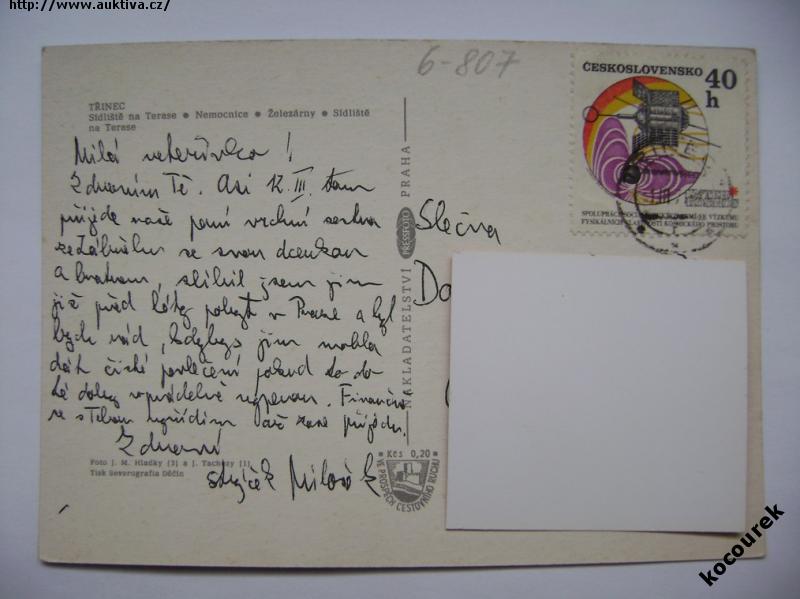 http://www.auktiva.cz/
6-807
ČESKOSLOVENSKO 40
h
SPOLUPRÁCE SOCIALISTICKÝCH ZEMÍ VE VÝZKUMU
FYSIKÁLNÍCH VLASTNOSTÍ KOSMICKÉHO PROSTORU
TŘINEC
Sídliště na Terase ● Nemocnice ● Železárny ● Sídliště
na Terase
Milá neteřinko!
Zdravím Tě. Asi 12. III. tam
přijede naše paní vrchní sestra
se svou dcerkou
a bratrem, slíbil jsem jim
již před léty pobyt v Praze a byl
bych rád, kdybys jim mohla
dát čisté povlečení pokud to do
té doby Finančně
se s Tebou vyřídím až zase přijedu.
Zdraví
strýček
Foto J. M. Hladký [3] a J. Tachezy [1]
Tisk Severografia Děčín
NAKLADATELSTVÍ PRESSFOTO PRAHA
Kčs 0,20
VE PROSPĚCH CESTOVNÍHO RUCHU
Slečna
Do
kocourek